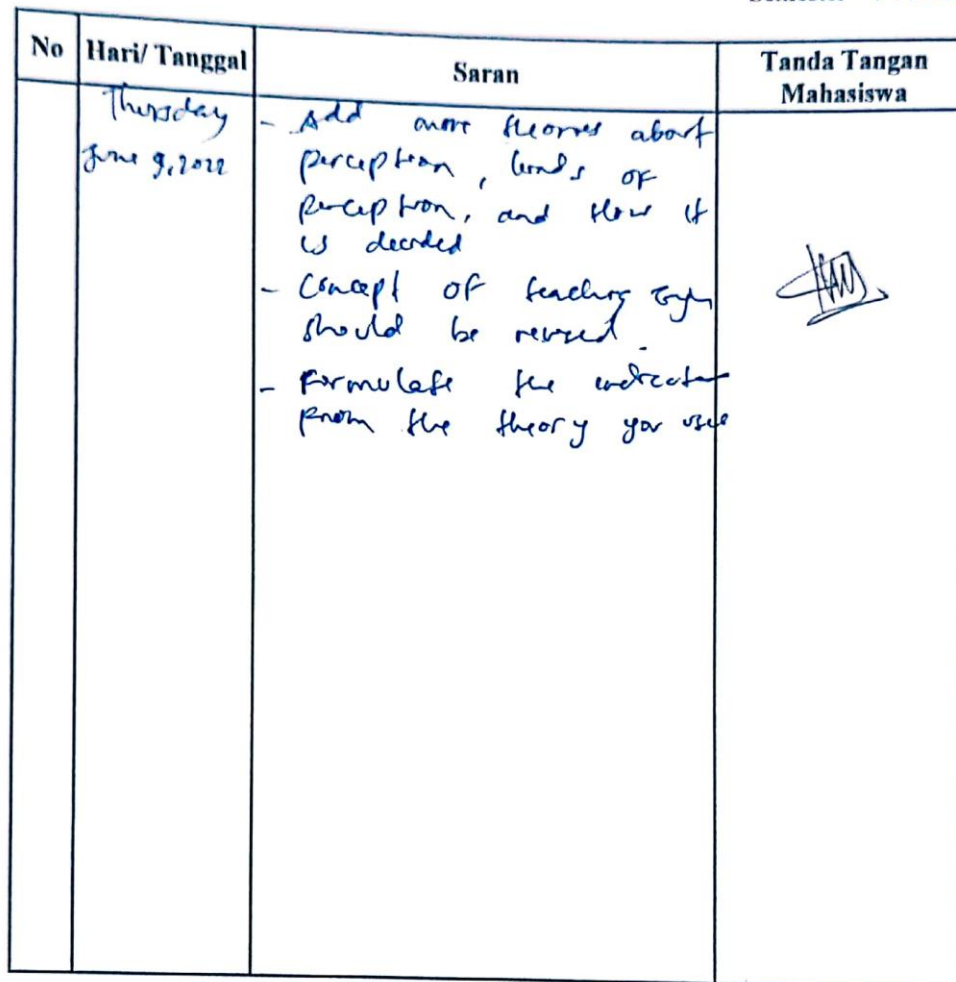 No Hari/ Tanggal Saran Tanda Tangan Mahasiswa
Thursday
June 9, 2022
- Add more theories about
perception, kinds of
perception, and how it
is decided
- Concept of teaching
should be revised.
- Formulate the indicator
from the theory you use